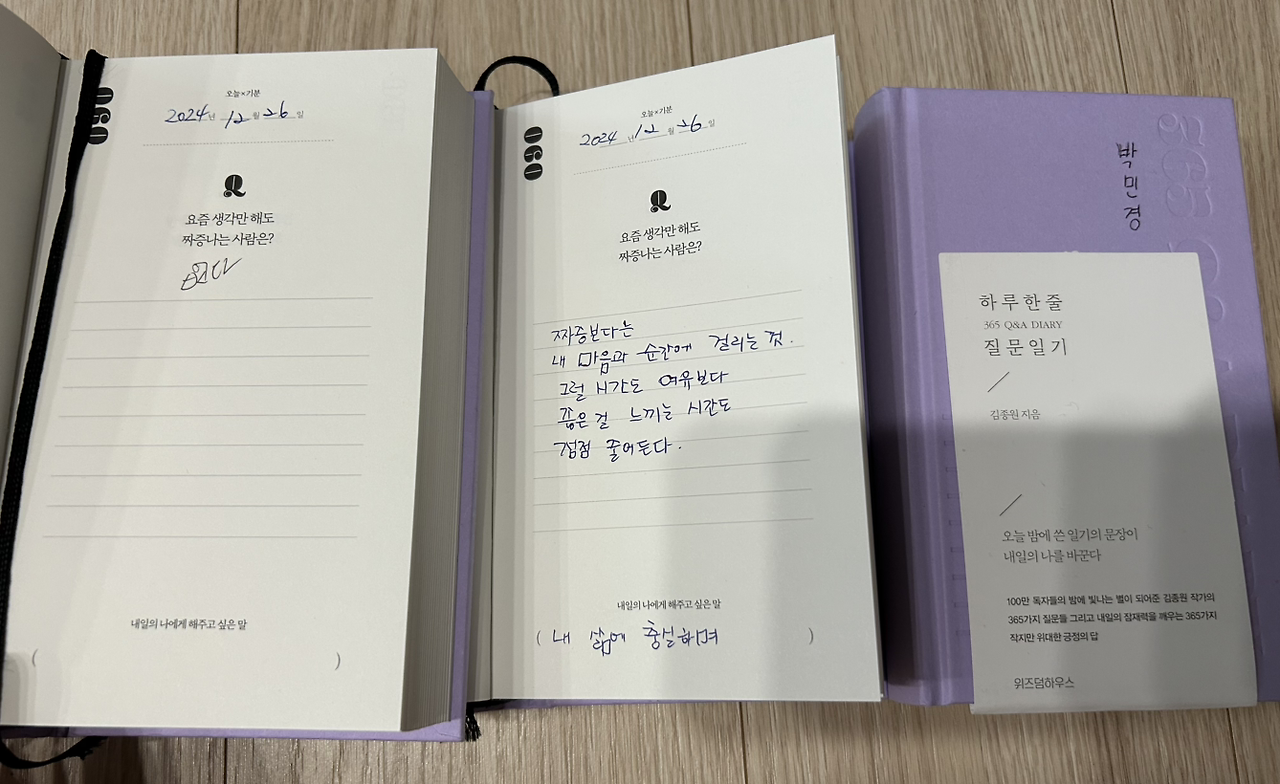 060
오늘×기분
2024년 12월 26일
Q
요즘 생각만 해도
짜증나는 사람은?
없다
내일의 나에게 해주고 싶은 말
( )
060
오늘×기분
2024년 12월 26일
Q
요즘 생각만 해도
짜증나는 사람은?
짜증보다는
내 마음과 순간에 걸리는 것.
그럴 시간도 여유보다
좋은 걸 느끼는 시간도
점점 줄어든다.
내일의 나에게 해주고 싶은 말
( 내 삶에 충실하며 )
박민경
365
하루한줄
365 Q&A DIARY
질문일기
김종원 지음
오늘 밤에 쓴 일기의 문장이
내일의 나를 바꾼다
100만 독자들의 밤에 빛나는 별이 되어준 김종원 작가의
365가지 질문들 그리고 내일의 잠재력을 깨우는 365가지
작지만 위대한 긍정의 답
위즈덤하우스